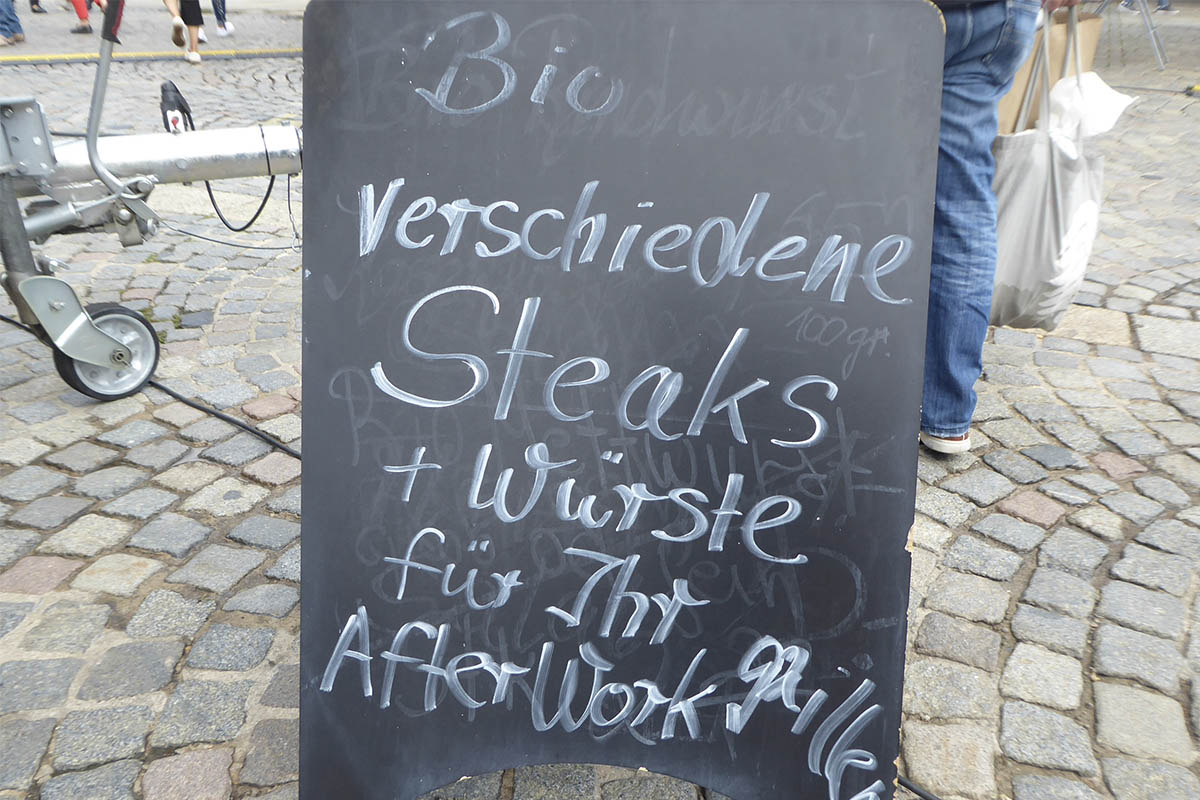 Bio
verschiedene
Steaks
100gr.
+ Würste
für Ihr
AfterWorkgrille